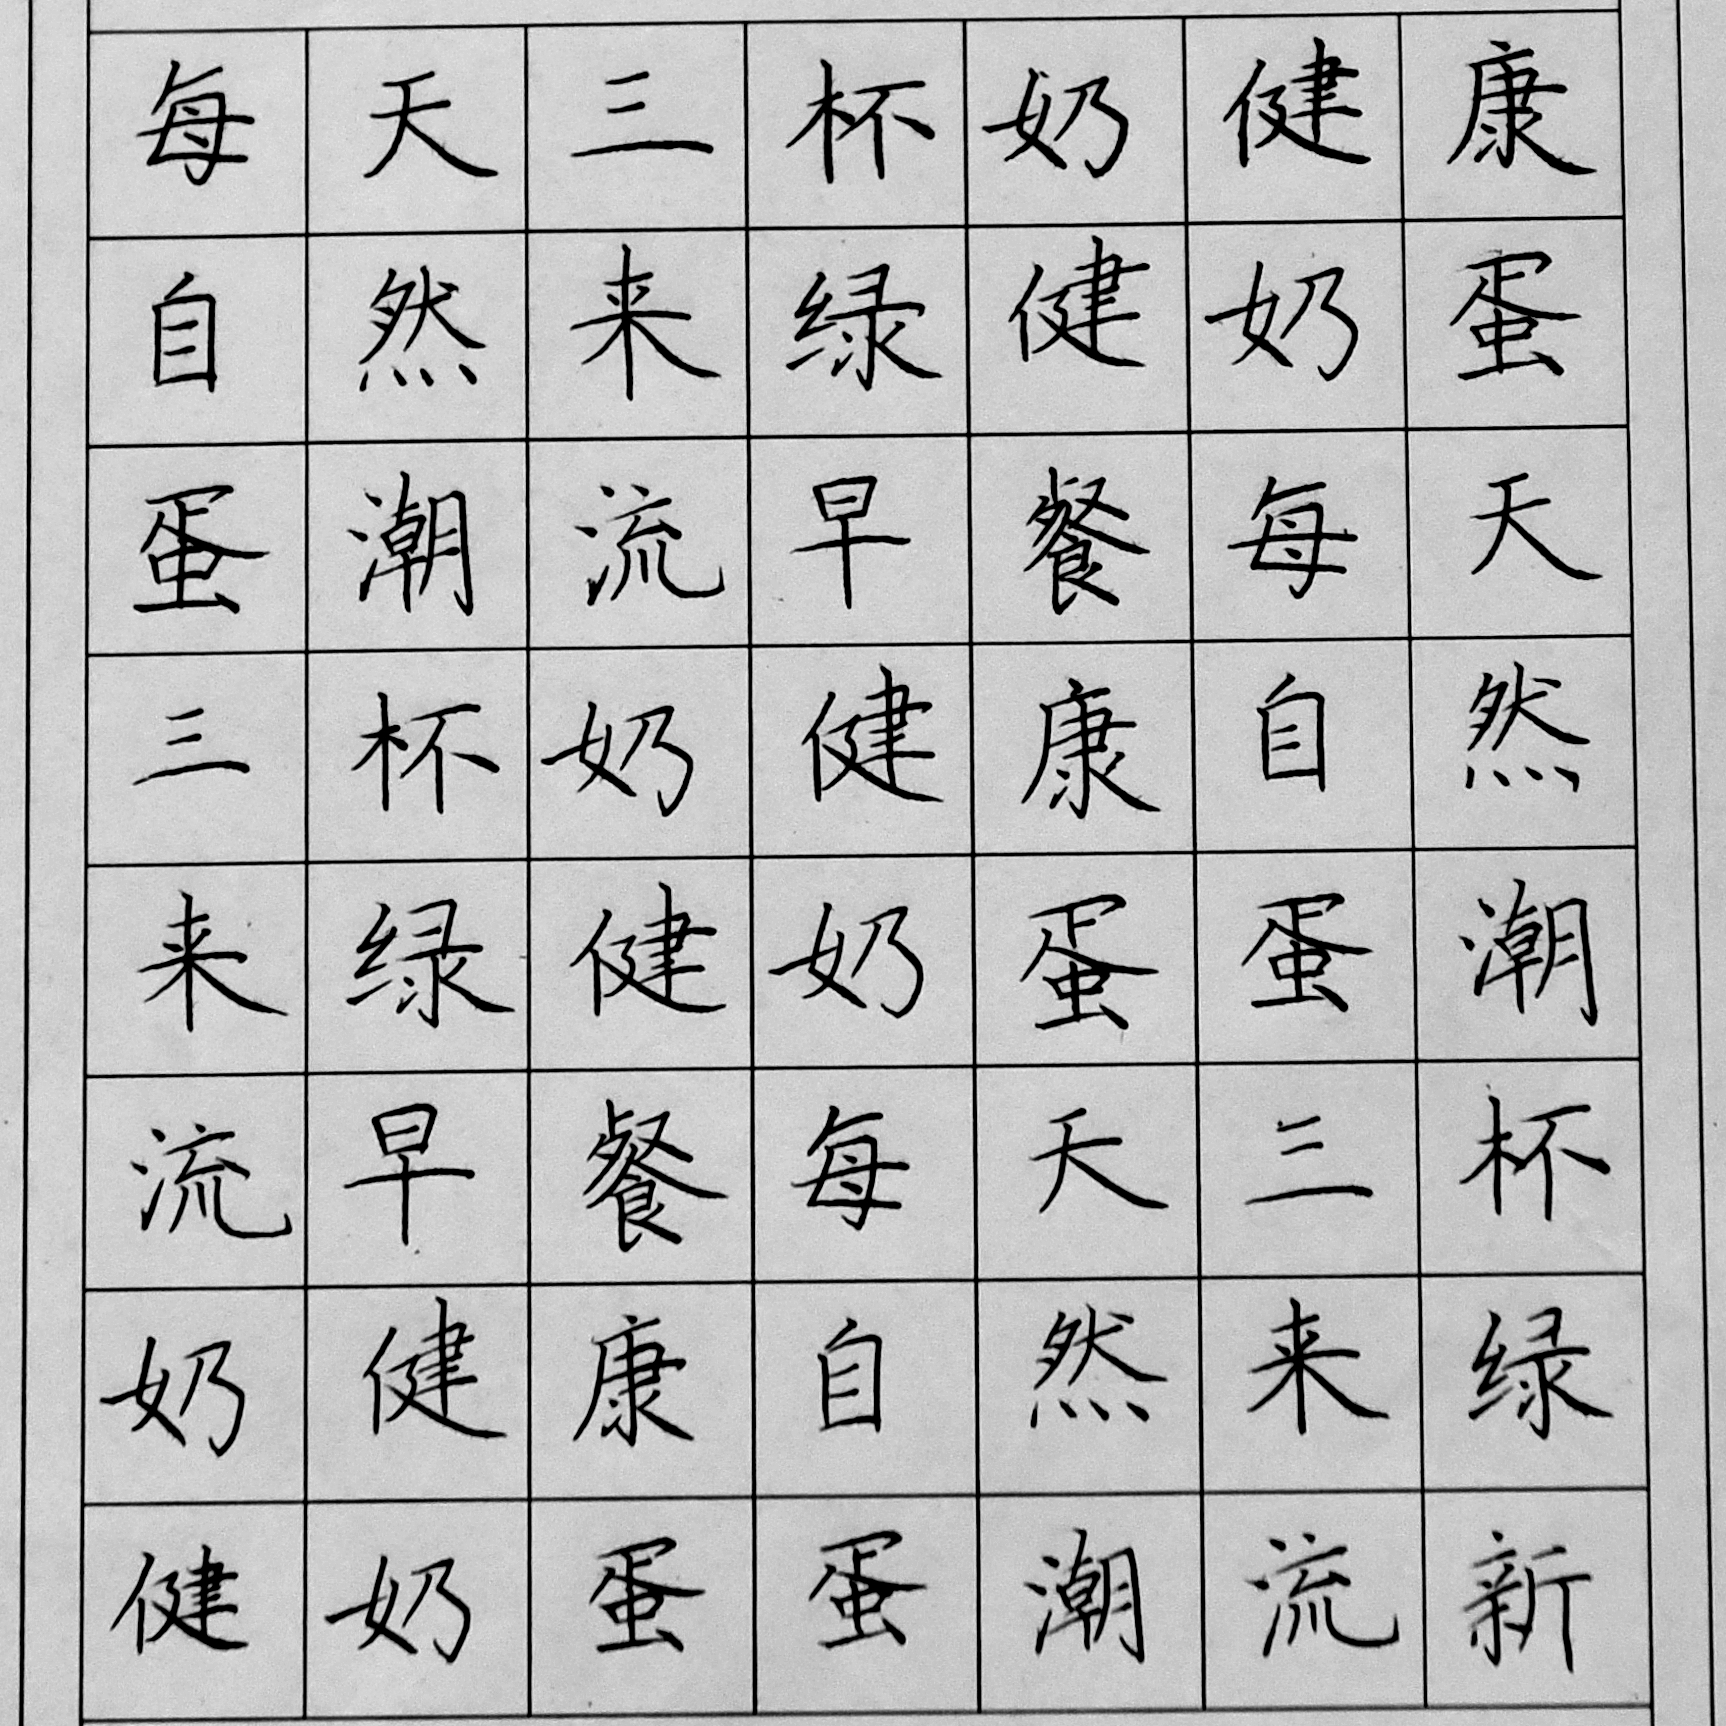 每天三杯奶健康
自然来绿健奶蛋
蛋潮流早餐每天
三杯奶健康自然
来绿健奶蛋蛋潮
流早餐每天三杯
奶健康自然来绿
健奶蛋蛋潮流新